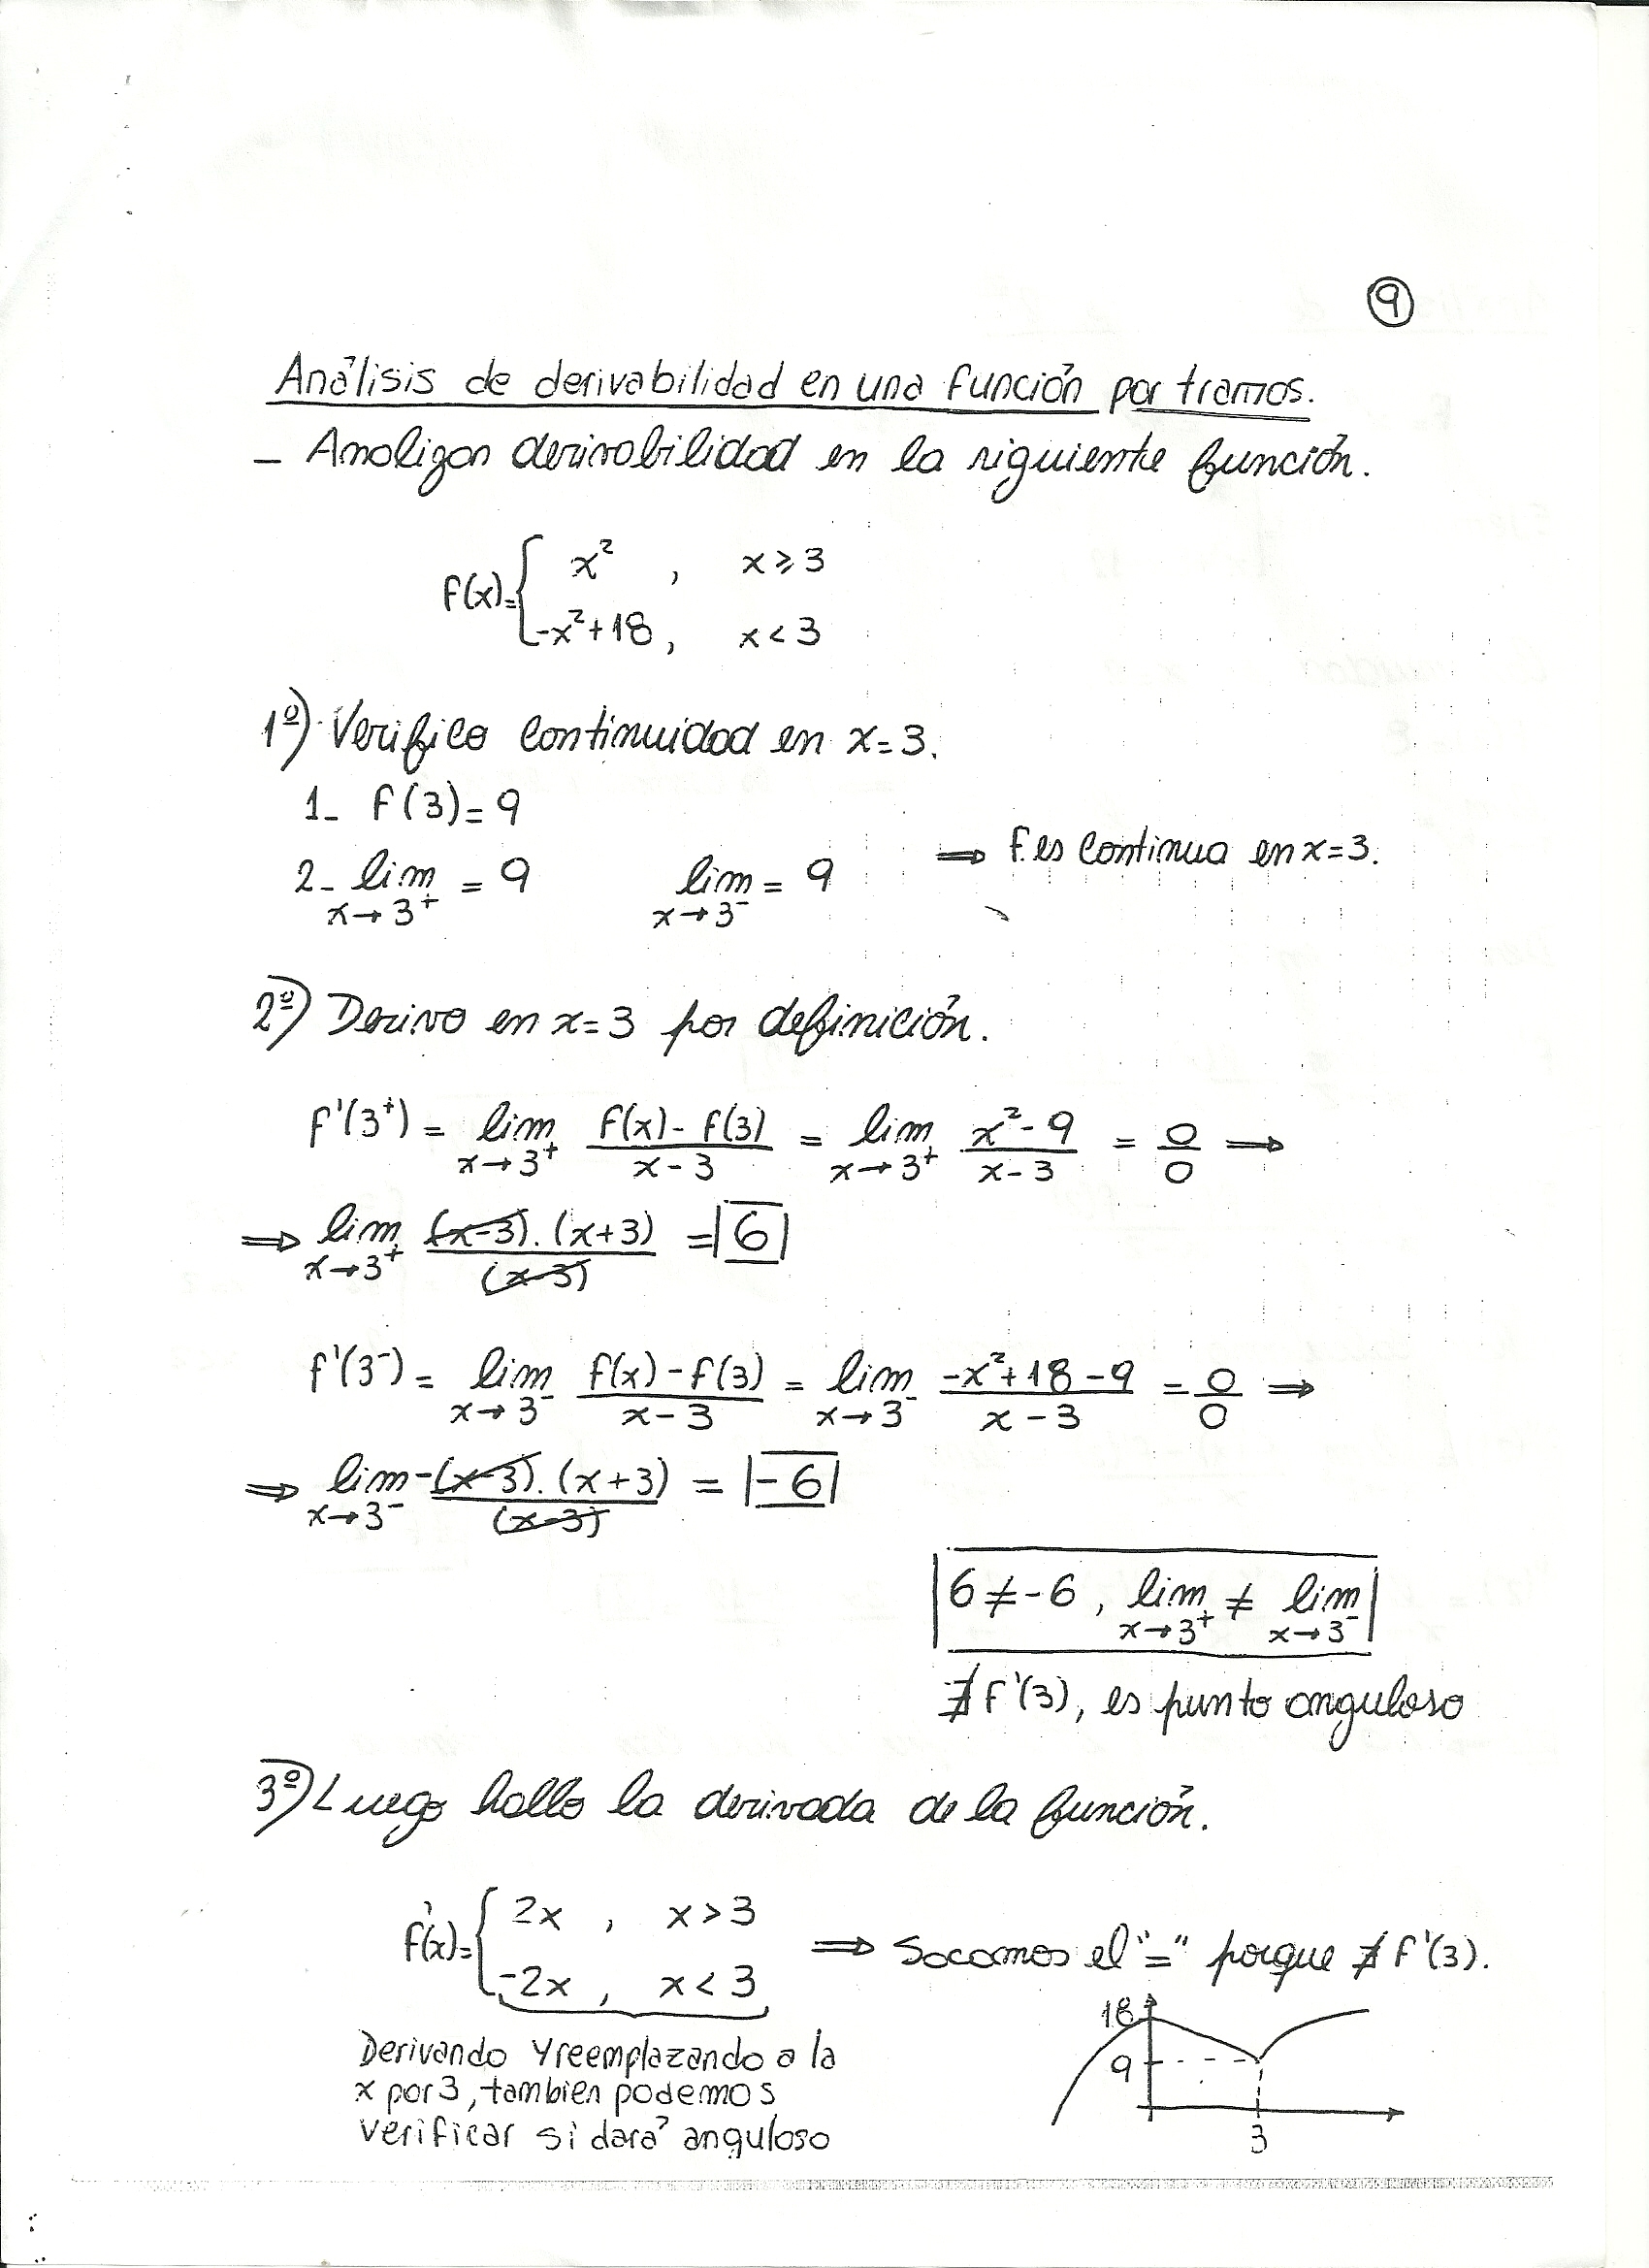 9
Análisis de derivabilidad en una función por tramos.
- Analizar derivabilidad en la siguiente función.
f(x)={ x² , x ≥ 3
-x²+18 , x < 3
1º) Verifico continuidad en x=3.
1- f(3)=9
2- lim x→3⁺ = 9 lim x→3⁻ = 9 ⇒ f. es continua en x=3.
2º) Derivo en x=3 por definición.
f'(3⁺) = lim x→3⁺ (f(x)-f(3))/(x-3) = lim x→3⁺ (x²-9)/(x-3) = 0/0 ⇒
⇒ lim x→3⁺ ((x-3).(x+3))/(x-3) = 6
f'(3⁻) = lim x→3⁻ (f(x)-f(3))/(x-3) = lim x→3⁻ (-x²+18-9)/(x-3) = 0/0 ⇒
⇒ lim x→3⁻ (-(x-3).(x+3))/(x-3) = -6
6 ≠ -6 , lim x→3⁺ ≠ lim x→3⁻
∄ f'(3), es punto anguloso
3º) Luego hallo la derivada de la función.
f'(x)={ 2x , x > 3
-2x , x < 3 ⇒ Sacamos el "=" porque ∄ f'(3).
Derivando y reemplazando a la
x por 3, tambien podemos
verificar si dará anguloso
18
9
3